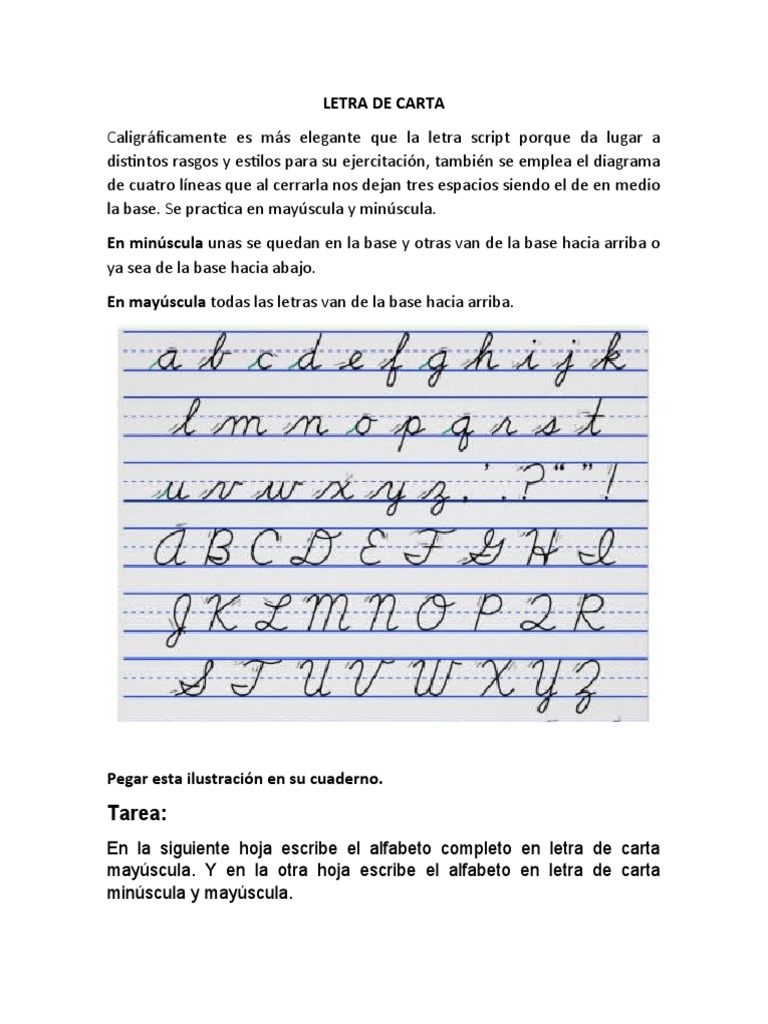 LETRA DE CARTA
Caligráficamente es más elegante que la letra script porque da lugar a
distintos rasgos y estilos para su ejercitación, también se emplea el diagrama
de cuatro líneas que al cerrarla nos dejan tres espacios siendo el de en medio
la base. Se practica en mayúscula y minúscula.
En minúscula unas se quedan en la base y otras van de la base hacia arriba o
ya sea de la base hacia abajo.
En mayúscula todas las letras van de la base hacia arriba.
a b c d e f g h i j k
l m n o p q r s t
u v w x y z . ' . ? “ ” !
A B C D E F G H I
J K L M N O P Q R
S T U V W X Y Z
Pegar esta ilustración en su cuaderno.
Tarea:
En la siguiente hoja escribe el alfabeto completo en letra de carta
mayúscula. Y en la otra hoja escribe el alfabeto en letra de carta
minúscula y mayúscula.